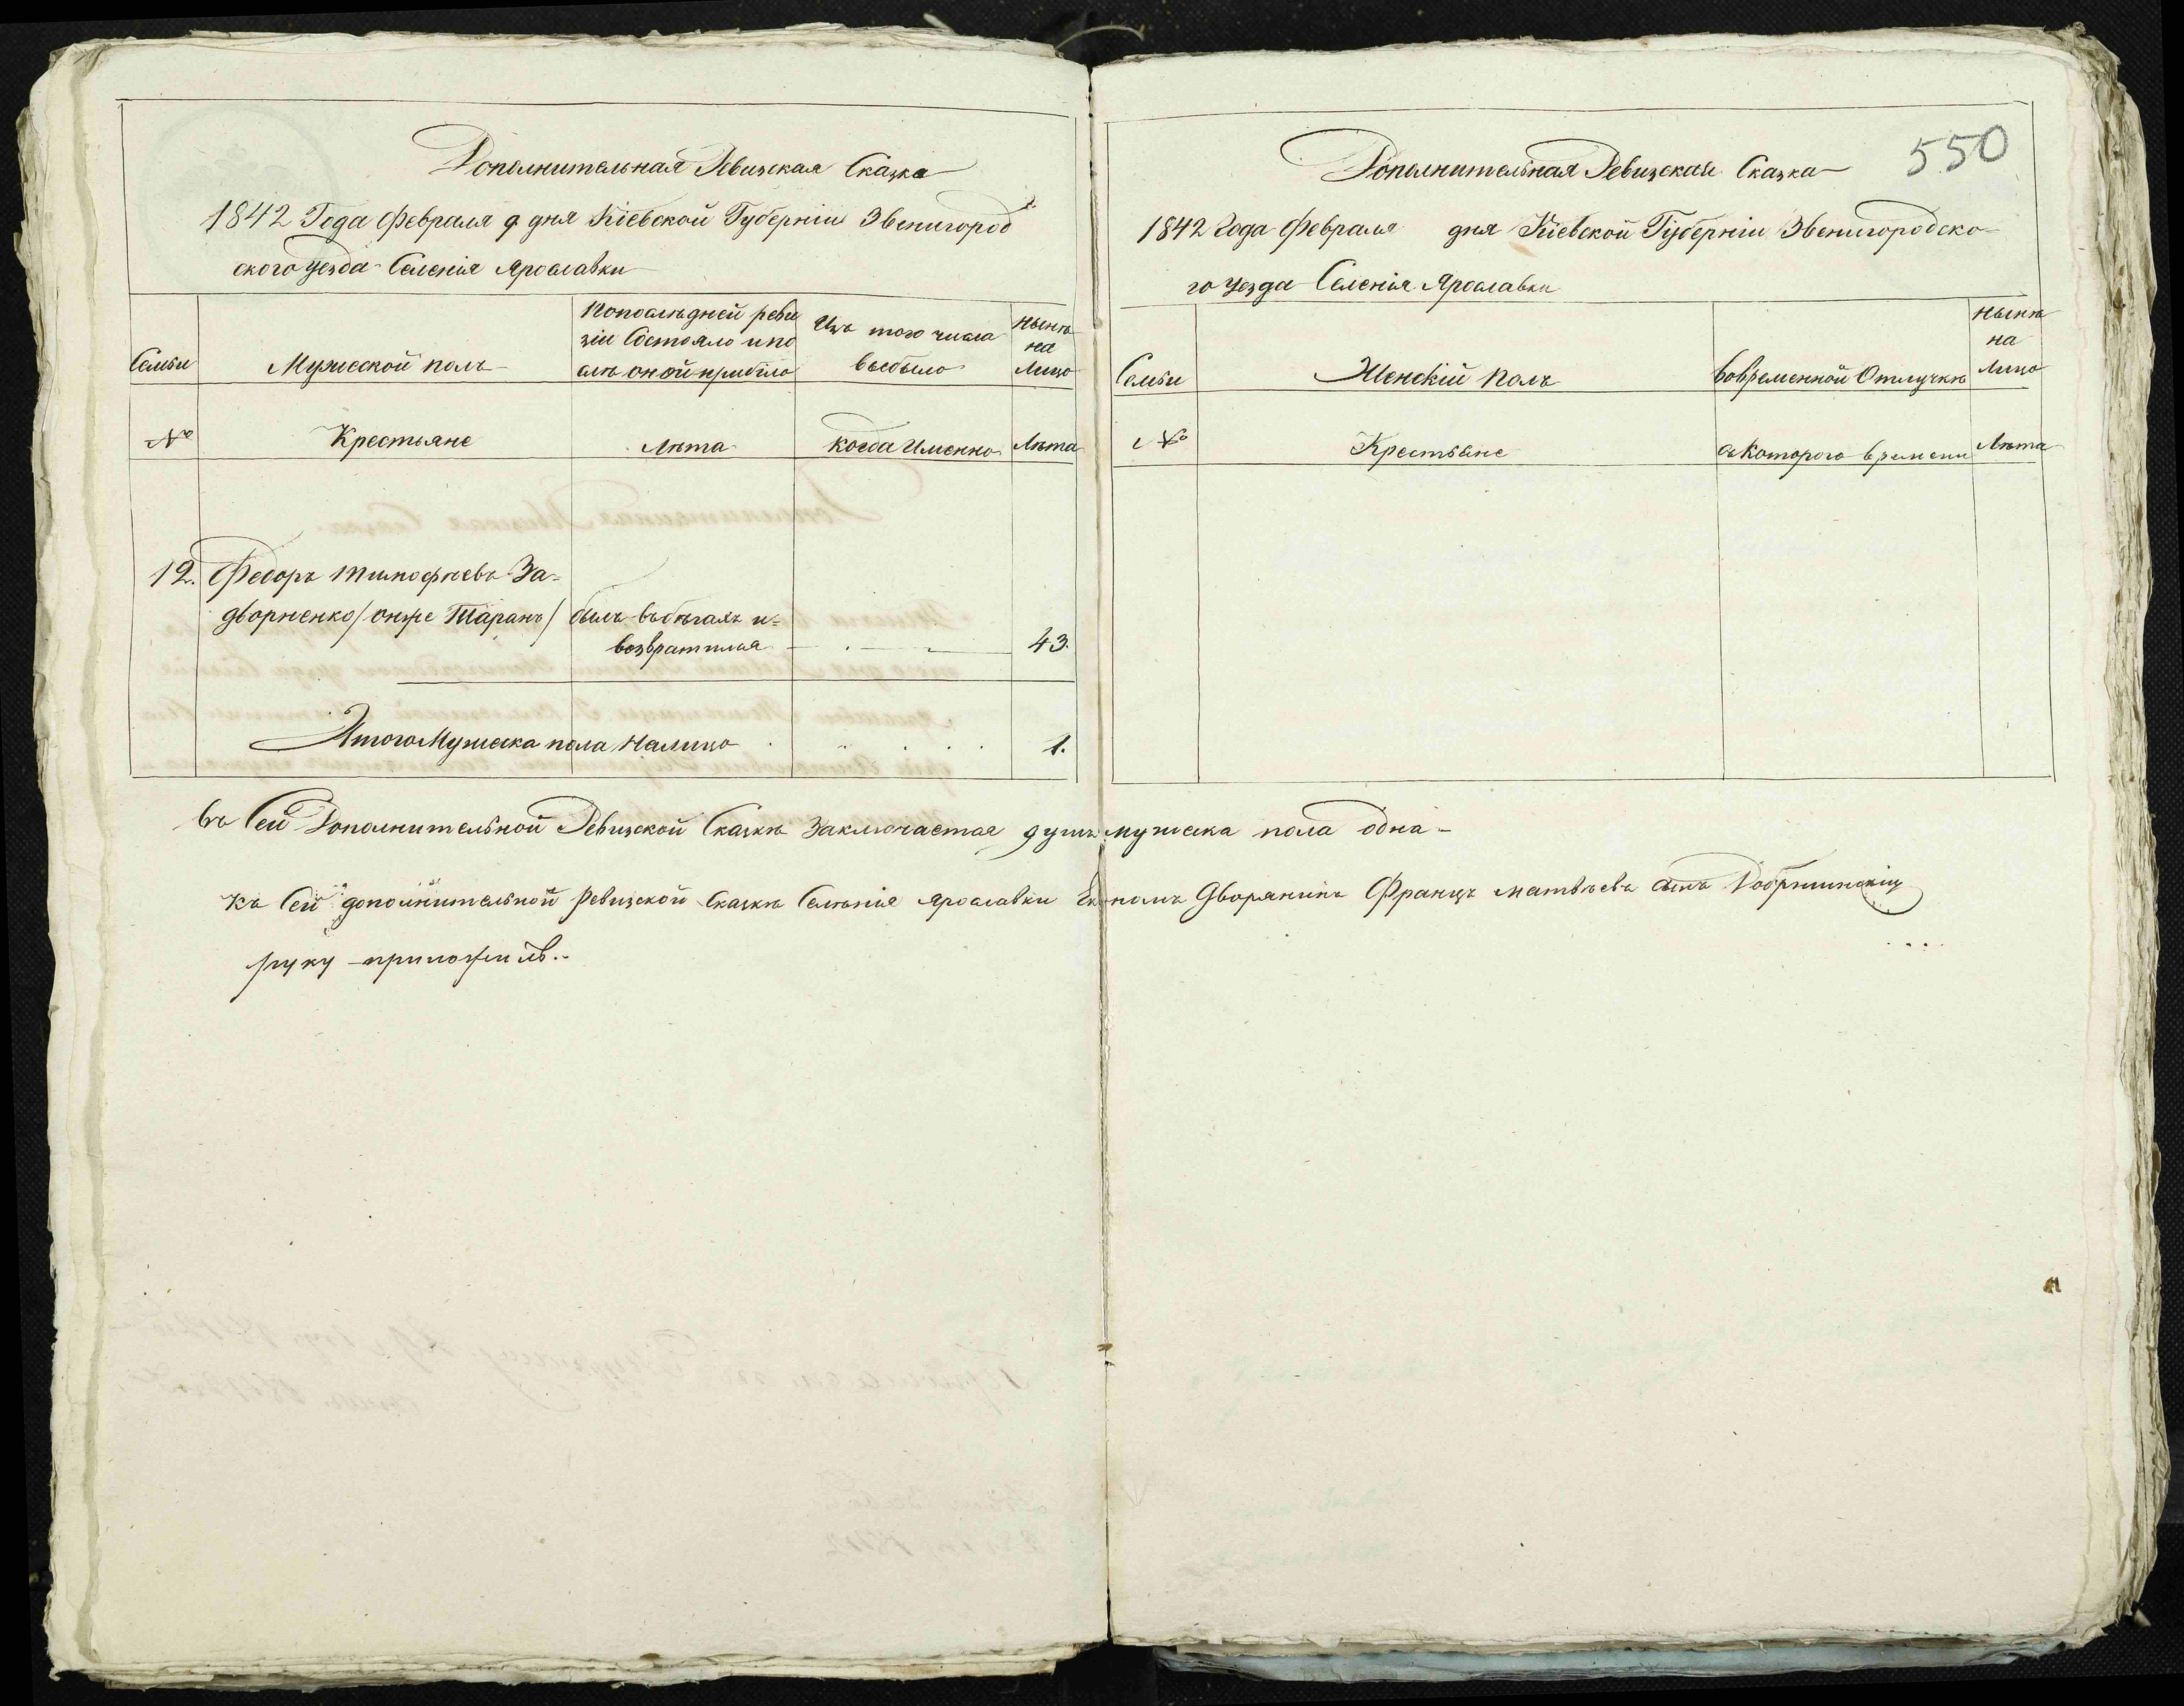 Дополнительная Ревизская Сказка
1842 Года Февраля 9 дня Кіевской Губерніи Звенигород
ского уезда Селенія Ярославки
Семьи
Мужеской полъ
Попослѣдней реви
зіи Состояло ипо
слѣ оной прибыло
Изъ того числа
выбыло
Нынѣ
на
Лицо
№
Крестьяне
Лѣта
когда Именно
Лѣта
12.
Федоръ Тимофѣевъ За=
дворненко / онже Таранъ /
былъ въбѣгахъ и=
возвратился
43.
Итого Мужеска пола Налицо
1.
550
Дополнительная Ревизская Сказка
1842 Года Февраля дня Кіевской Губерніи Звенигородско
го Уезда Селенія Ярославки
Семьи
Женскій Полъ
Вовременной Отлучкѣ
Нынѣ
на
Лицо
№
Крестьяне
съ Которого времени
Лѣта
Въ Сей Дополнительной Ревизской Сказкѣ Заключается душъ мужеска пола одна-
Къ Сей дополнительной ревизской Сказкѣ Селѣнія Ярославки Економъ Дворянинъ Францъ матвѣевъ сынъ
руку приложилъ..